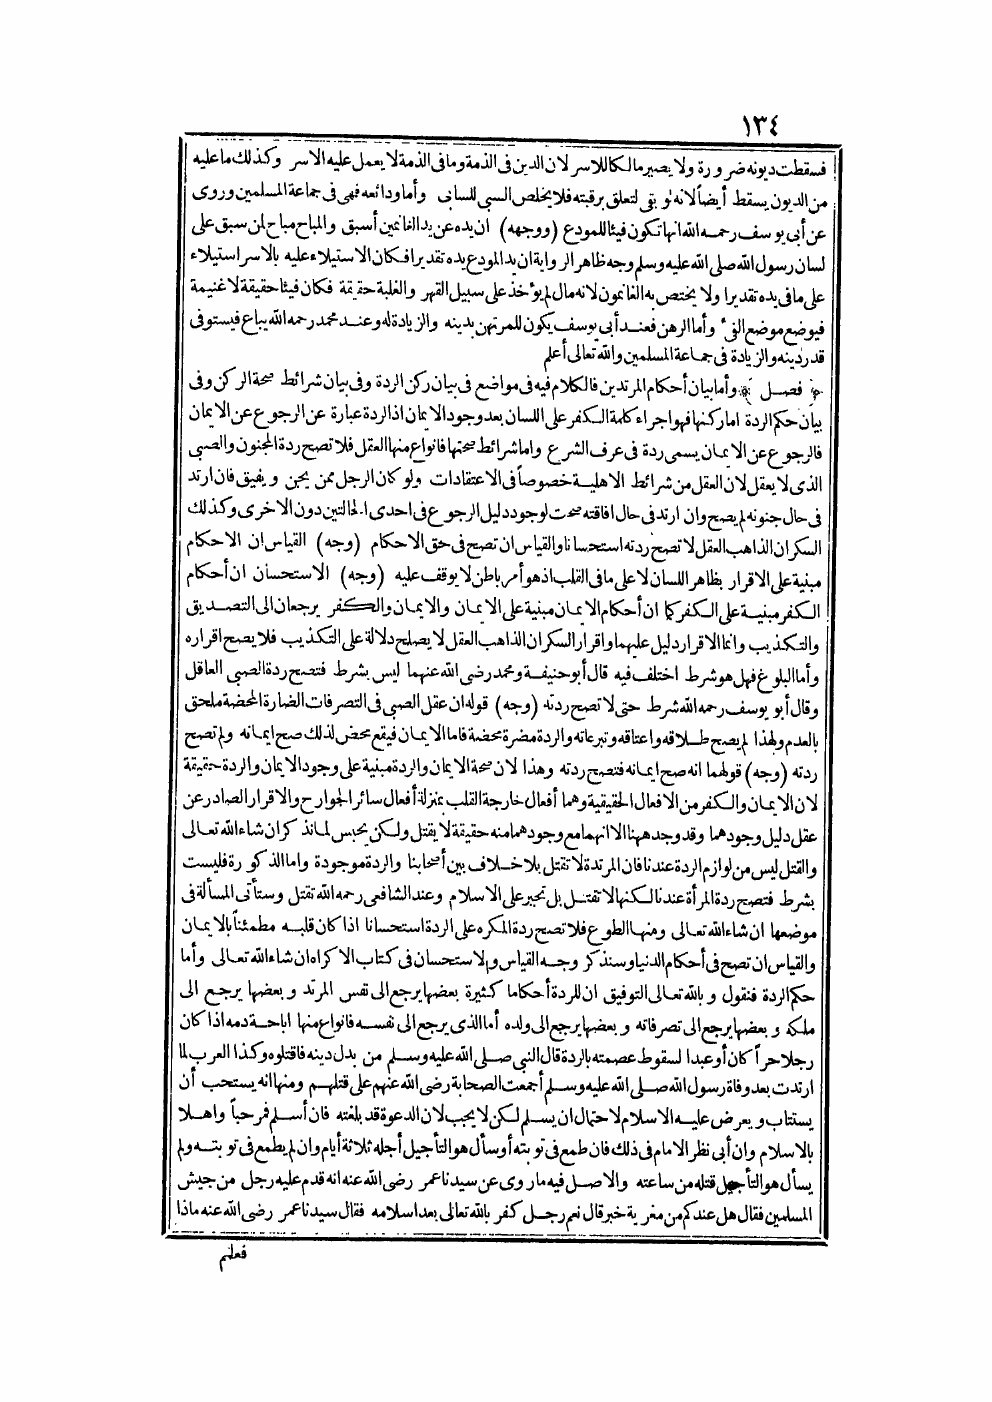 ١٣٤
فسقطت ديونه ضرورة ولا يصير مالكا للاسر لان الدين فى الذمة وما فى الذمة لا يعمل عليه الاسر وكذلك ما عليه
من الديون يسقط أيضاً لانه لو بقى لتعلق برقبته فلا يخلص السبى للسابى وأما ودائعه فهى فى جماعة المسلمين وروى
عن أبى يوسف رحمه الله انها تكون فيئا للمودع (ووجهه) ان يده عن يد الغانمين أسبق والمباح مباح لمن سبق على
لسان رسول الله صلى الله عليه وسلم وجه ظاهر الرواية ان يد المودع يده تقديرا فكان الاستيلاء عليه بالاسر استيلاء
على ما فى يده تقديرا ولا يختص به الغانمون لانه مال لم يؤخذ على سبيل القهر والغلبة حقيقة فكان فيئا حقيقة لا غنيمة
فيوضع موضع الفىء وأما الرهن فعند أبى يوسف يكون للمرتهن بدينه والزيادة له وعند محمد رحمه الله يباع فيستوفى
قدر دينه والزيادة فى جماعة المسلمين والله تعالى أعلم
﴿ فصل ﴾ وأما بيان أحكام المرتدين فالكلام فيه فى مواضع فى بيان ركن الردة وفى بيان شرائط صحة الركن وفى
بيان حكم الردة اما ركنها فهو اجراء كلمة الكفر على اللسان بعد وجود الايمان اذ الردة عبارة عن الرجوع عن الايمان
فالرجوع عن الايمان يسمى ردة فى عرف الشرع واما شرائط صحتها فانواع منها العقل فلا تصح ردة المجنون والصبى
الذى لا يعقل لان العقل من شرائط الاهلية خصوصاً فى الاعتقادات ولو كان الرجل ممن يجن ويفيق فان ارتد
فى حال جنونه لم يصح وان ارتد فى حال افاقته صحت لوجود دليل الرجوع فى احدى الحالتين دون الاخرى وكذلك
السكران الذاهب العقل لا تصح ردته استحسانا والقياس ان تصح فى حق الاحكام (وجه) القياس ان الاحكام
مبنية على الاقرار بظاهر اللسان لا على ما فى القلب اذ هو أمر باطن لا يوقف عليه (وجه) الاستحسان ان أحكام
الكفر مبنية على الكفر كما ان أحكام الايمان مبنية على الايمان والايمان والكفر يرجعان الى التصديق
والتكذيب وانما الاقرار دليل عليهما واقرار السكران الذاهب العقل لا يصلح دلالة على التكذيب فلا يصح اقراره
وأما البلوغ فهل هو شرط اختلف فيه قال أبو حنيفة ومحمد رضى الله عنهما ليس بشرط فتصح ردة الصبى العاقل
وقال أبو يوسف رحمه الله شرط حتى لا تصح ردته (وجه) قوله ان عقل الصبى فى التصرفات الضارة المحضة ملحق
بالعدم ولهذا لم يصح طلاقه واعتاقه وتبرعاته والردة مضرة محضة فاما الايمان فيقع محض لذلك صح ايمانه ولم تصح
ردته (وجه) قولهما انه صح ايمانه فتصح ردته وهذا لان صحة الايمان والردة مبنية على وجود الايمان والردة حقيقة
لان الايمان والكفر من الافعال الحقيقية وهما أفعال خارجة القلب بمنزلة أفعال سائر الجوارح والاقرار الصادر عن
عقل دليل وجودهما وقد وجد ههنا الا انهما مع وجودهما منه حقيقة لا يقتل ولكن يحبس لما نذكر ان شاء الله تعالى
والقتل ليس من لوازم الردة عندنا فان المرتدة لا تقتل بلا خلاف بين أصحابنا والردة موجودة واما الذكورة فليست
بشرط فتصح ردة المرأة عندنا لكنها لا تقتل بل تجبر على الاسلام وعند الشافعى رحمه الله تقتل وستأتى المسألة فى
موضعها ان شاء الله تعالى ومنها الطوع فلا تصح ردة المكره على الردة استحسانا اذا كان قلبه مطمئناً بالايمان
والقياس ان تصح فى أحكام الدنيا وسنذكر وجه القياس والاستحسان فى كتاب الاكراه ان شاء الله تعالى وأما
حكم الردة فنقول وبالله تعالى التوفيق ان للردة أحكاما كثيرة بعضها يرجع الى نفس المرتد وبعضها يرجع الى
ملكه وبعضها يرجع الى تصرفاته وبعضها يرجع الى ولده أما الذى يرجع الى نفسه فانواع منها اباحة دمه اذا كان
رجلا حراً كان أو عبدا لسقوط عصمته بالردة قال النبى صلى الله عليه وسلم من بدل دينه فاقتلوه وكذا العرب لما
ارتدت بعد وفاة رسول الله صلى الله عليه وسلم أجمعت الصحابة رضى الله عنهم على قتلهم ومنها انه يستحب أن
يستتاب ويعرض عليه الاسلام لاحتمال ان يسلم لكن لا يجب لان الدعوة قد بلغته فان أسلم فمرحباً واهلا
بالاسلام وان أبى نظر الامام فى ذلك فان طمع فى توبته أو سأل هو التأجيل أجله ثلاثة أيام وان لم يطمع فى توبته ولم
يسأل هو التأجيل قتله من ساعته والاصل فيه ما روى عن سيدنا عمر رضى الله عنه انه قدم عليه رجل من جيش
المسلمين فقال هل عندكم من مغربة خبر قال نعم رجل كفر بالله تعالى بعد اسلامه فقال سيدنا عمر رضى الله عنه ماذا
فعلتم